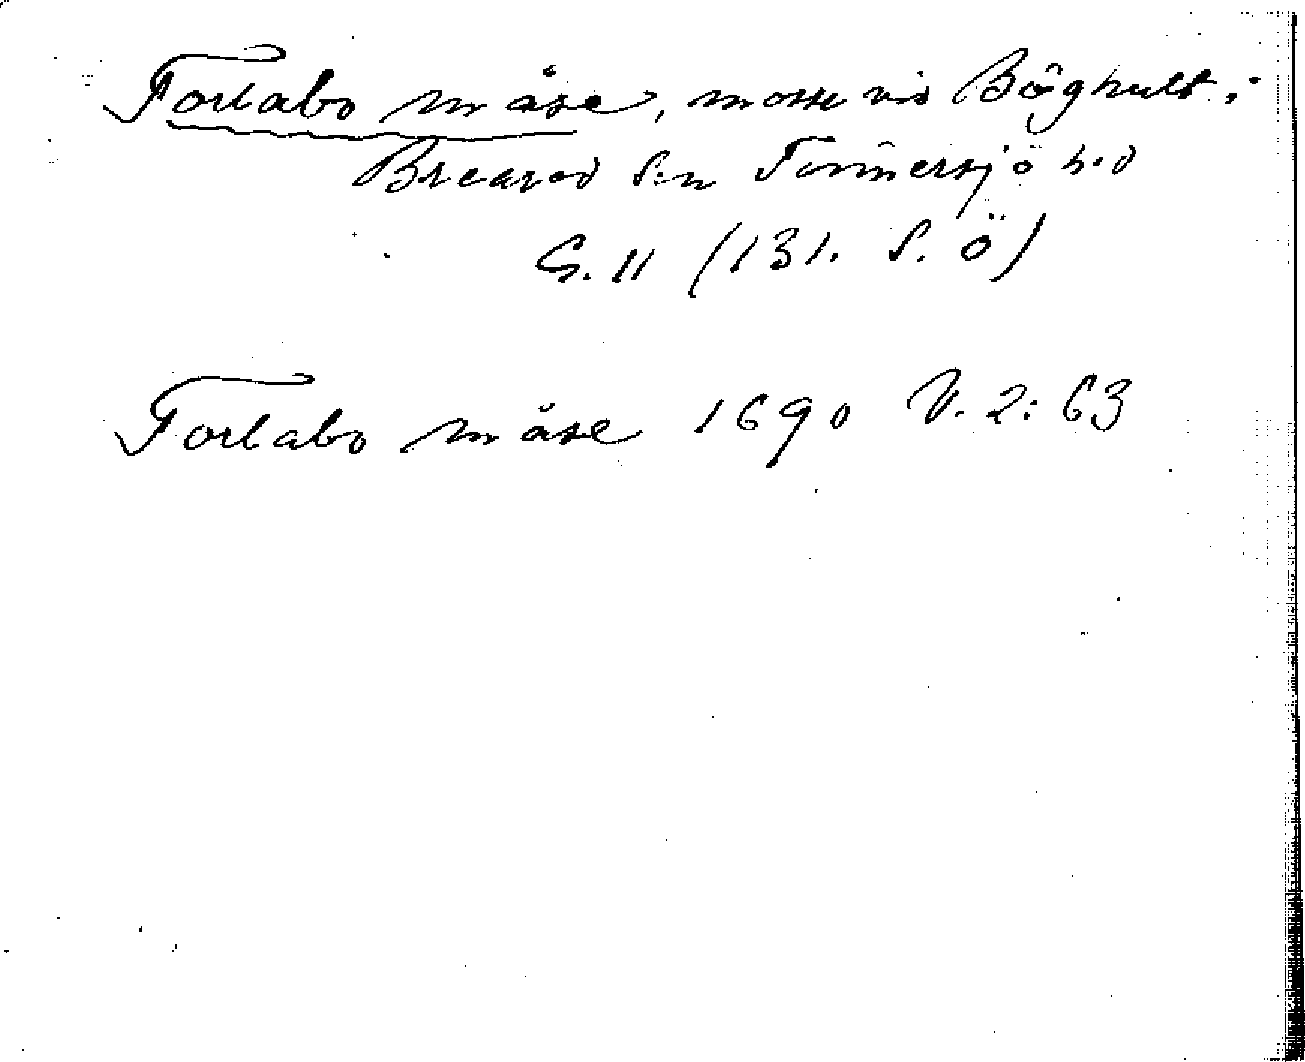 Torlabo måse, mosse vid Böghult i
Breared S:n Tönnersjö h:d
G. 11 (131. S. Ö)
Torlabo måse 1690 V. 2: 63